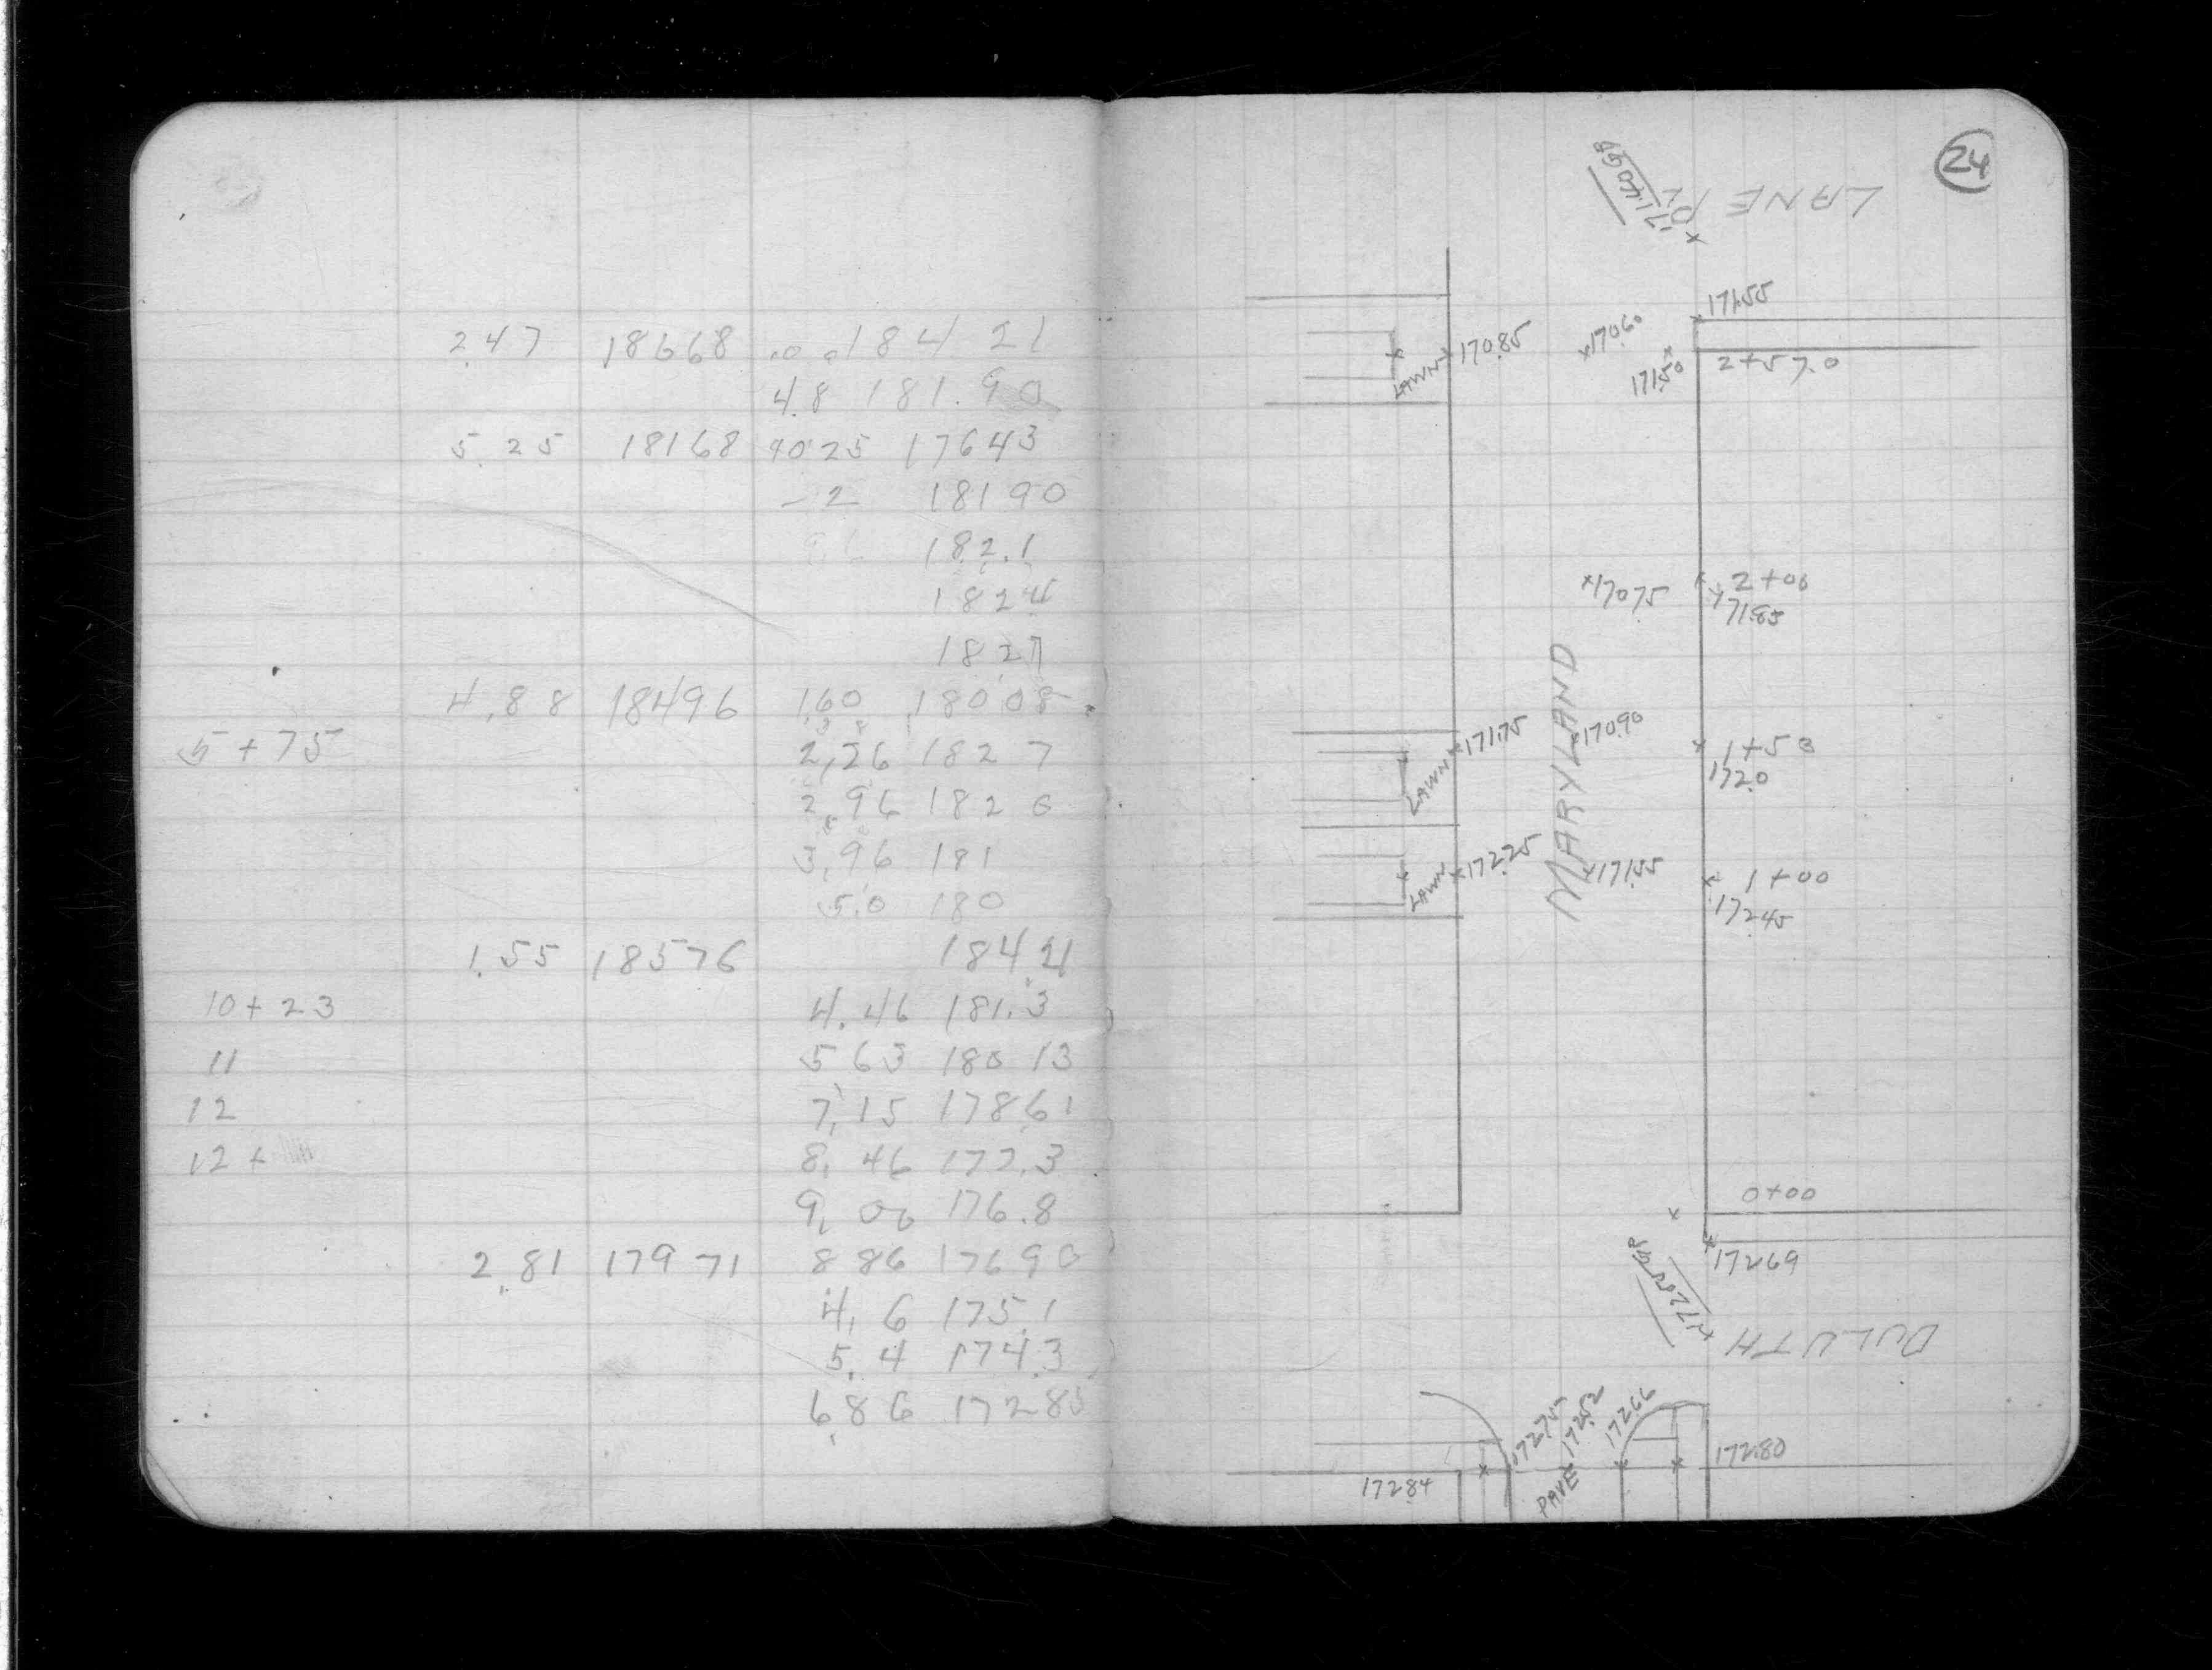 2.47 18668 184 21
4.8 181.90
5.25 18168 1025 17643
-2 18190
182.1
1824
1827
4.88 18496 1.60 18008
5+75 2.26 182 7
2.96 182 0
3.96 181
5.0 180
1.55 18576 184.21
10+23 4.46 181.3
11 5 63 180 13
12 7.15 17861
12+ 8.46 177.3
9.00 176.8
2.81 179 71 8 86 176 90
4.6 175.1
5.4 174.3
6.86 17285
24
LANE PL
171.40 GP
171.55
170.60
LAWN 170.85
171.50
2+57.0
170.75
2+00
171.85
MARYLAND
LAWN 171.75
170.90
1+53
172.0
LAWN 172.25
171.55
1+00
172.45
0+00
172.69
DULUTH
172.80
172.84
PAVE 172.52
172.66